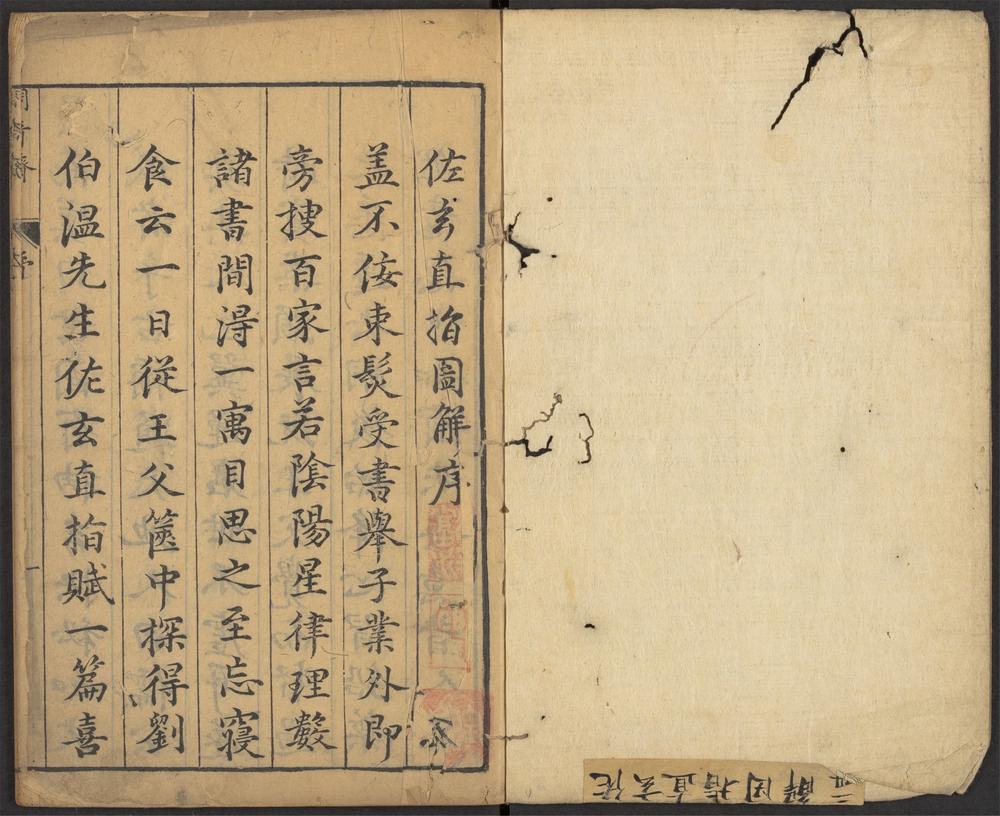 佐玄直指圖解序
盖不佞束髮受書舉子業外即
旁搜百家言若陰陽星律理數
諸書間淂一寓目思之至忘寝
食云一日從王父篋中探得劉
伯温先生佐玄直指賦一篇喜
序
佐玄直指図解